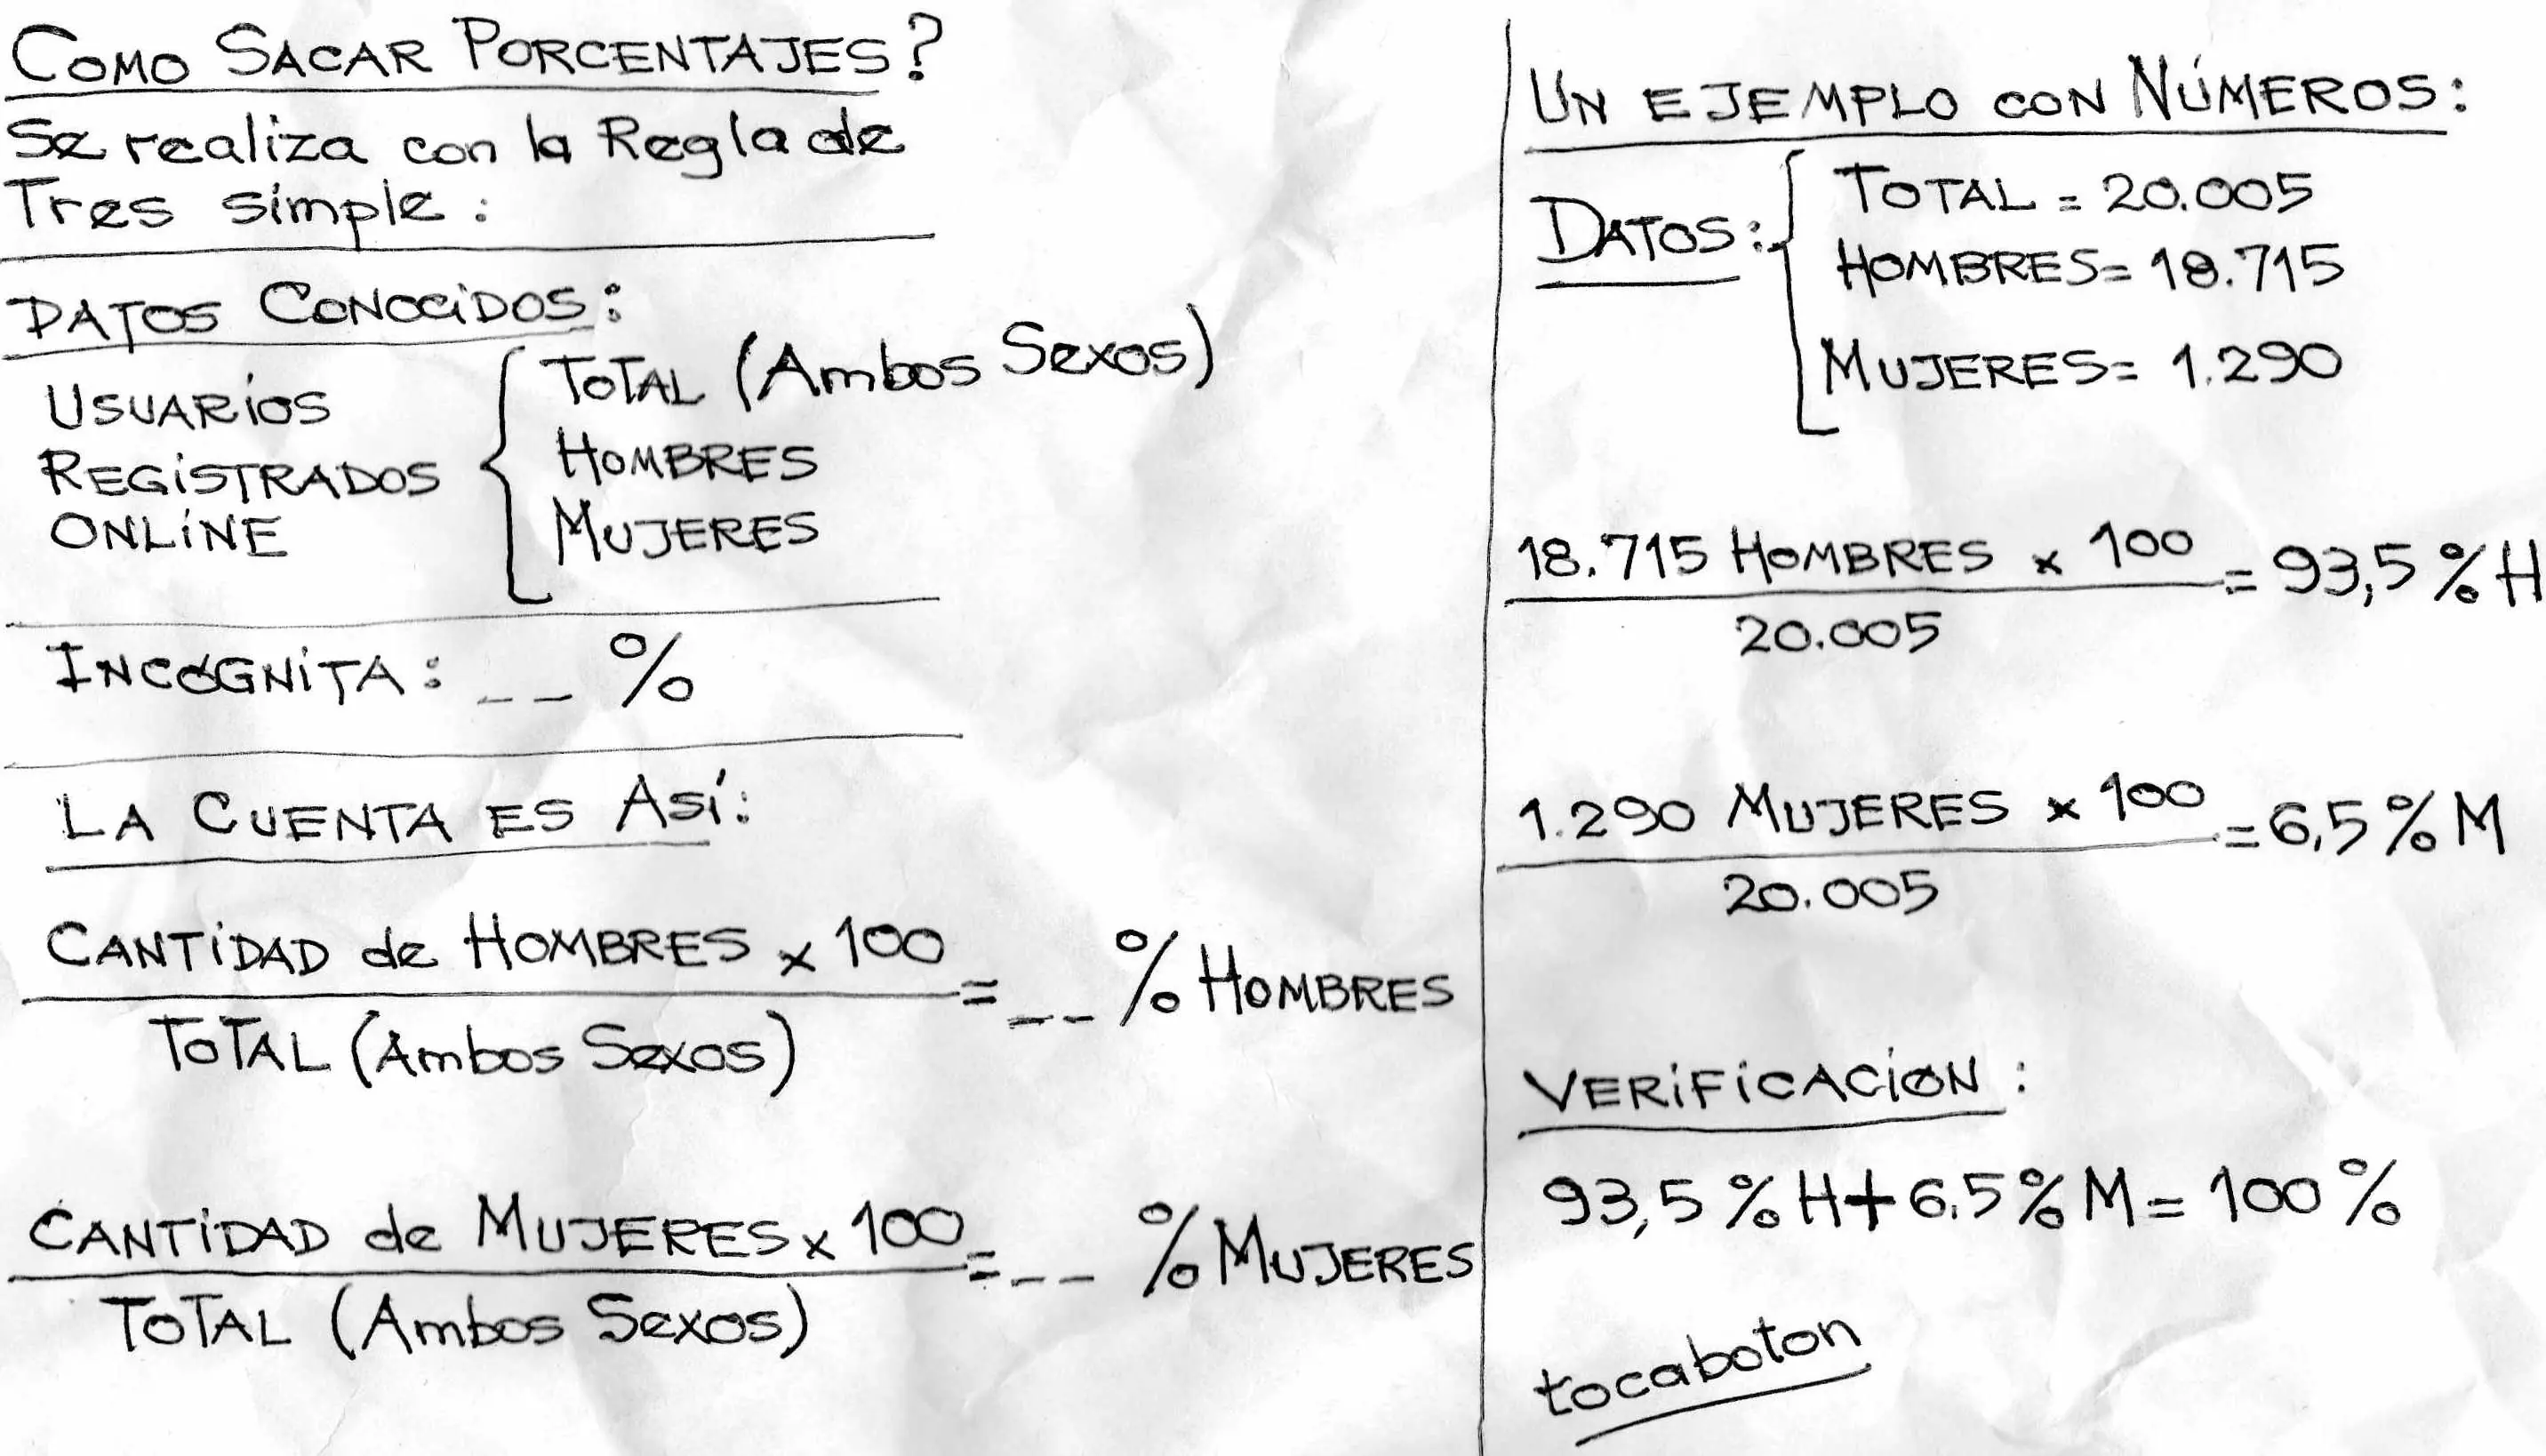 COMO SACAR PORCENTAJES?
Se realiza con la Regla de
Tres simple:
DATOS CONOCIDOS:
USUARIOS
REGISTRADOS
ONLINE
TOTAL (Ambos Sexos)
HOMBRES
MUJERES
INCÓGNITA: _ _ %
LA CUENTA ES ASÍ:
CANTIDAD de HOMBRES x 100
= _ _ % HOMBRES
TOTAL (Ambos Sexos)
CANTIDAD de MUJERES x 100
= _ _ % MUJERES
TOTAL (Ambos Sexos)
UN EJEMPLO CON NÚMEROS:
DATOS:
TOTAL = 20.005
HOMBRES= 18.715
MUJERES= 1.290
18.715 HOMBRES x 100
= 93,5 % H
20.005
1.290 MUJERES x 100
= 6,5 % M
20.005
VERIFICACIÓN:
93,5 % H + 6.5 % M = 100 %
tocaboton